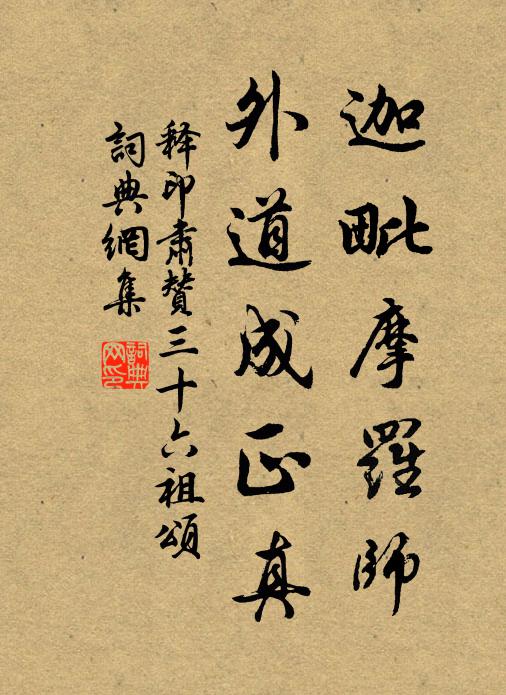 迦毗摩羅師
外道成正真
释印肃贊三十六祖頌
詞典網集
詞典网印